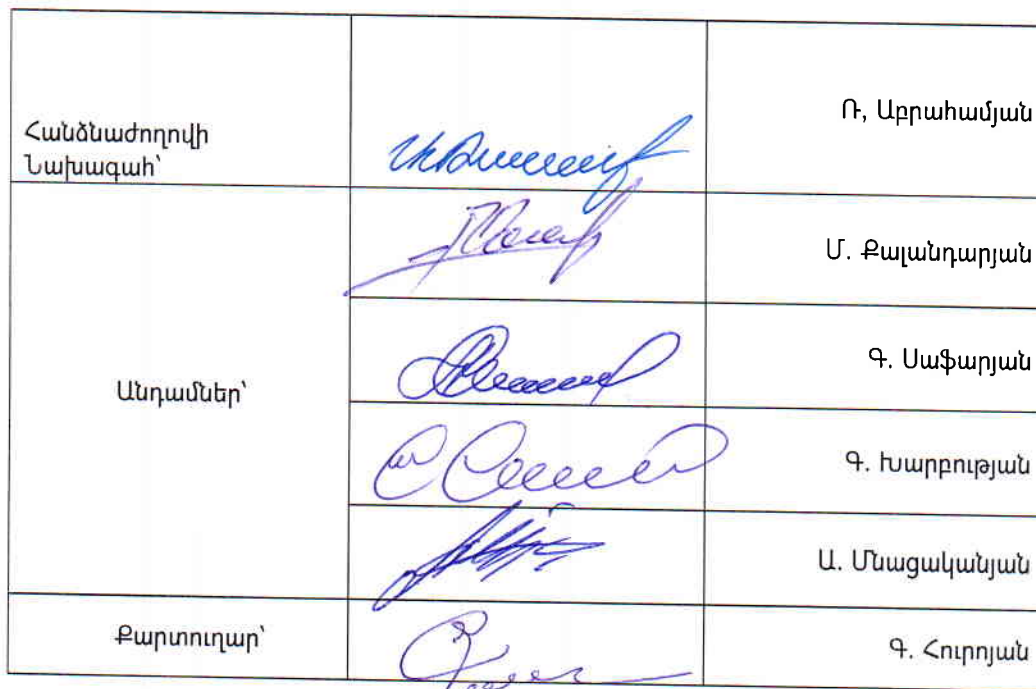 Հանձնաժողովի
Նախագահ՝
Ռ, Աբրահամյան
Մ. Քալանդարյան
Գ. Սաֆարյան
Անդամներ՝
Գ. Խարբության
Ա. Մնացականյան
Քարտուղար՝
Գ. Հուրոյան